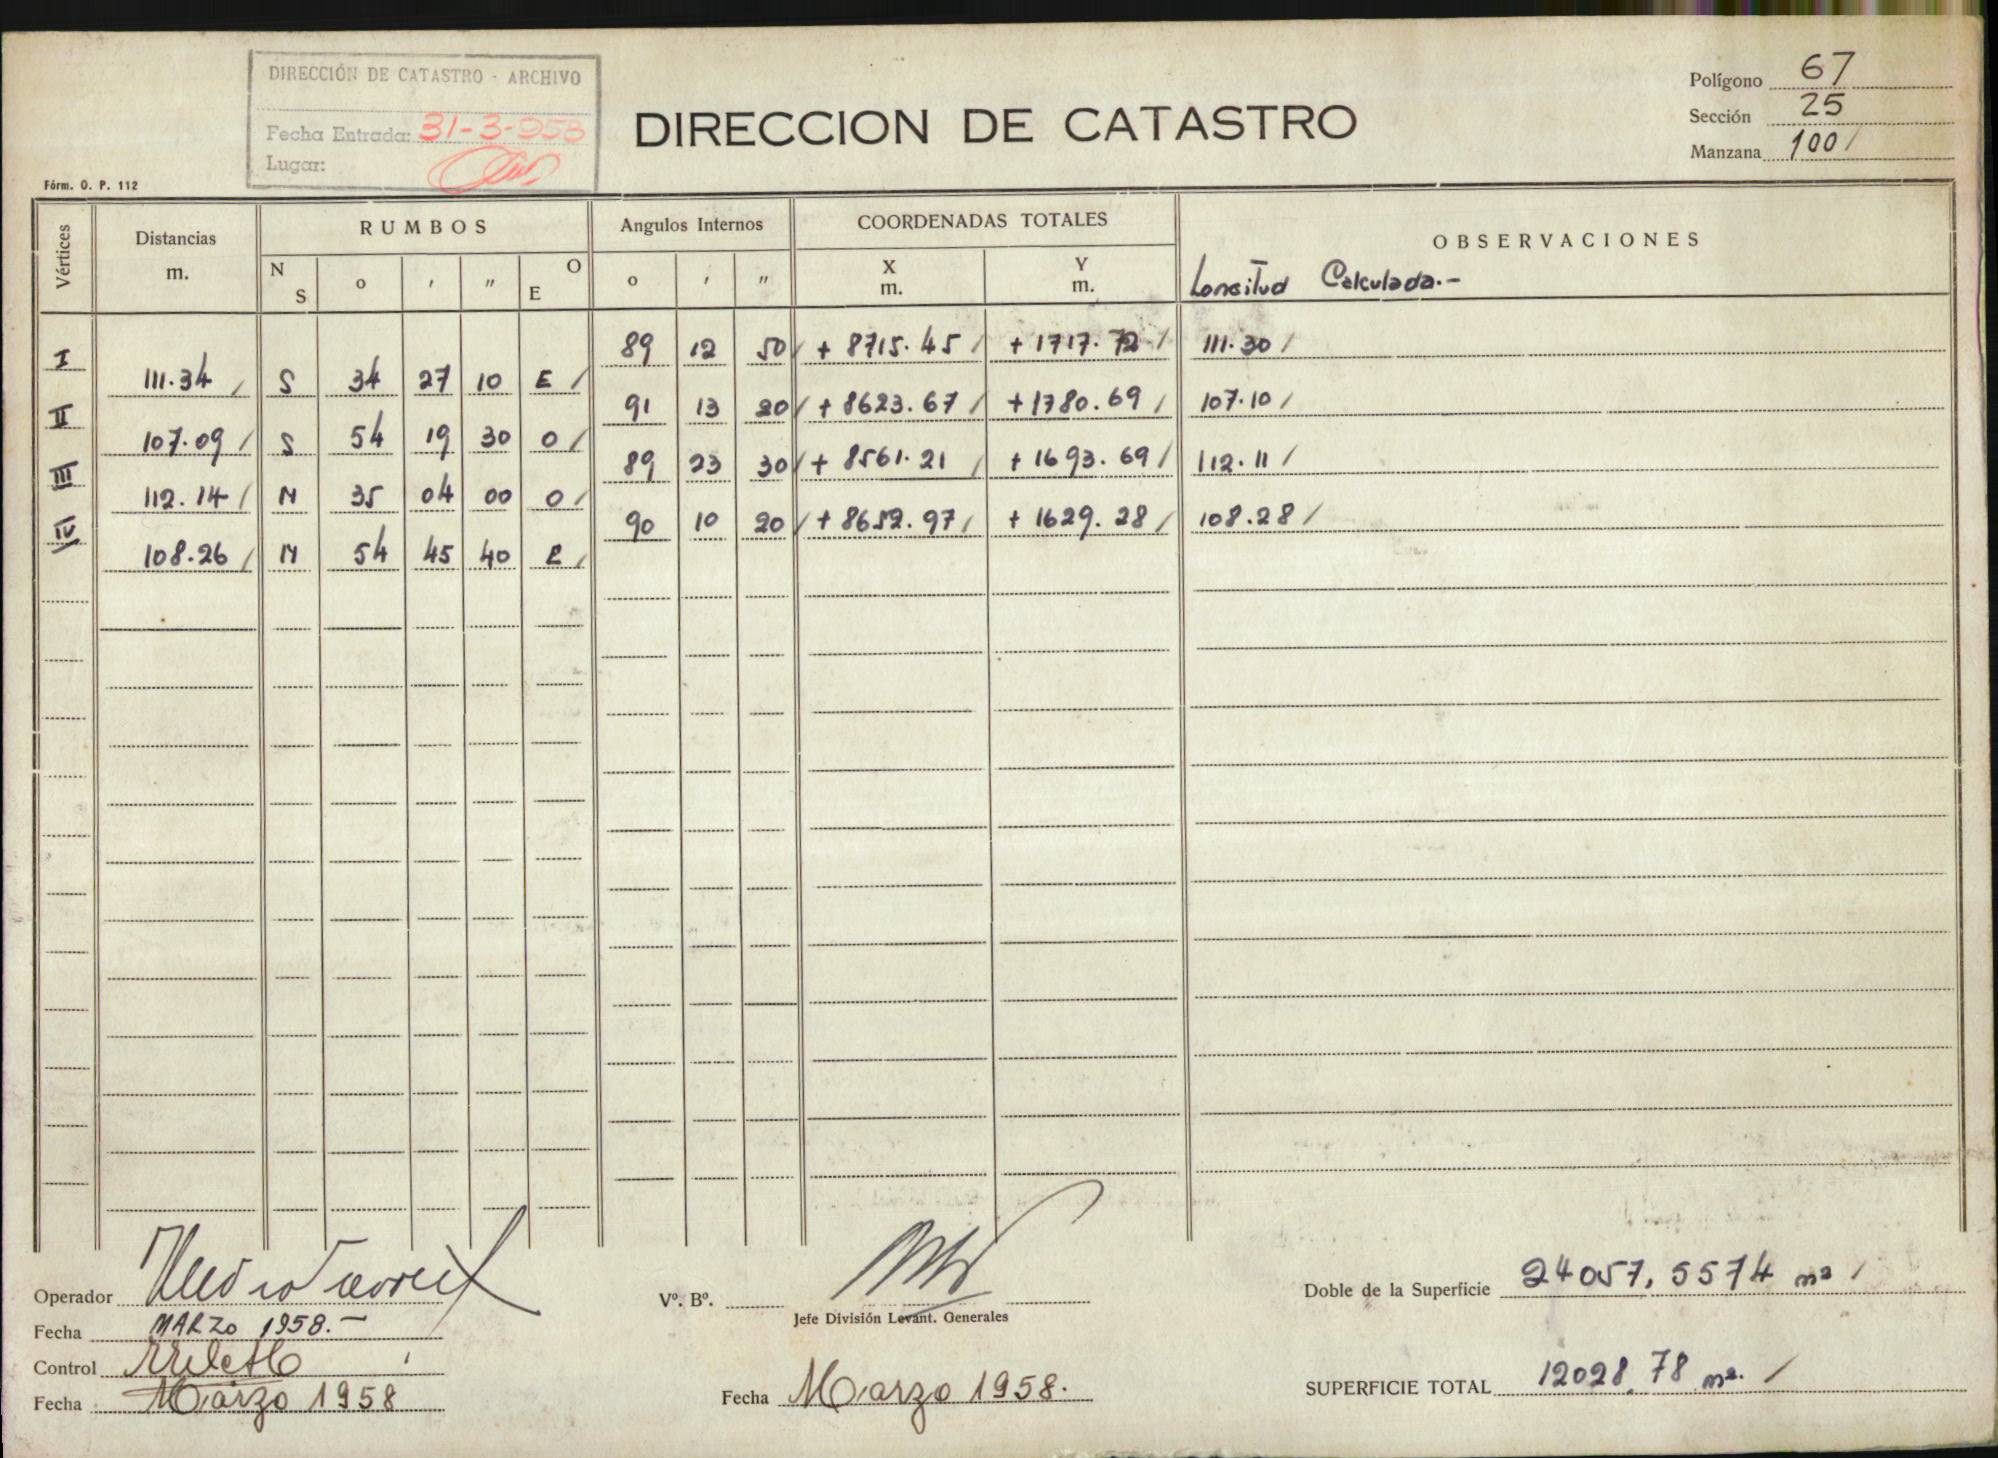 DIRECCIÓN DE CATASTRO - ARCHIVO
Fecha Entrada: 31-3-958
Lugar:
DIRECCION DE CATASTRO
Polígono 67
Sección 25
Manzana 100 /
Fórm. O. P. 112
Vértices Distancias m. RUMBOS Angulos Internos COORDENADAS TOTALES OBSERVACIONES
N S o ' " O E o ' " X m. Y m. Longitud Calculada.-
I 89 12 50 / + 8715.45 / + 1717.72 / 111.30 /
111.34 / S 34 27 10 E /
II 91 13 20 / + 8623.67 / + 1780.69 / 107.10 /
107.09 / S 54 19 30 O /
III 89 23 30 / + 8561.21 / + 1693.69 / 112.11 /
112.14 / N 35 04 00 O /
IV 90 10 20 / + 8652.97 / + 1629.28 / 108.28 /
108.26 / N 54 45 40 E /
Operador
Fecha MARZO 1958.-
Control
Fecha Marzo 1958
Vº. Bº.
Jefe División Levant. Generales
Fecha Marzo 1958.
Doble de la Superficie 24057,5574 m2 /
SUPERFICIE TOTAL 12028,78 m2. /